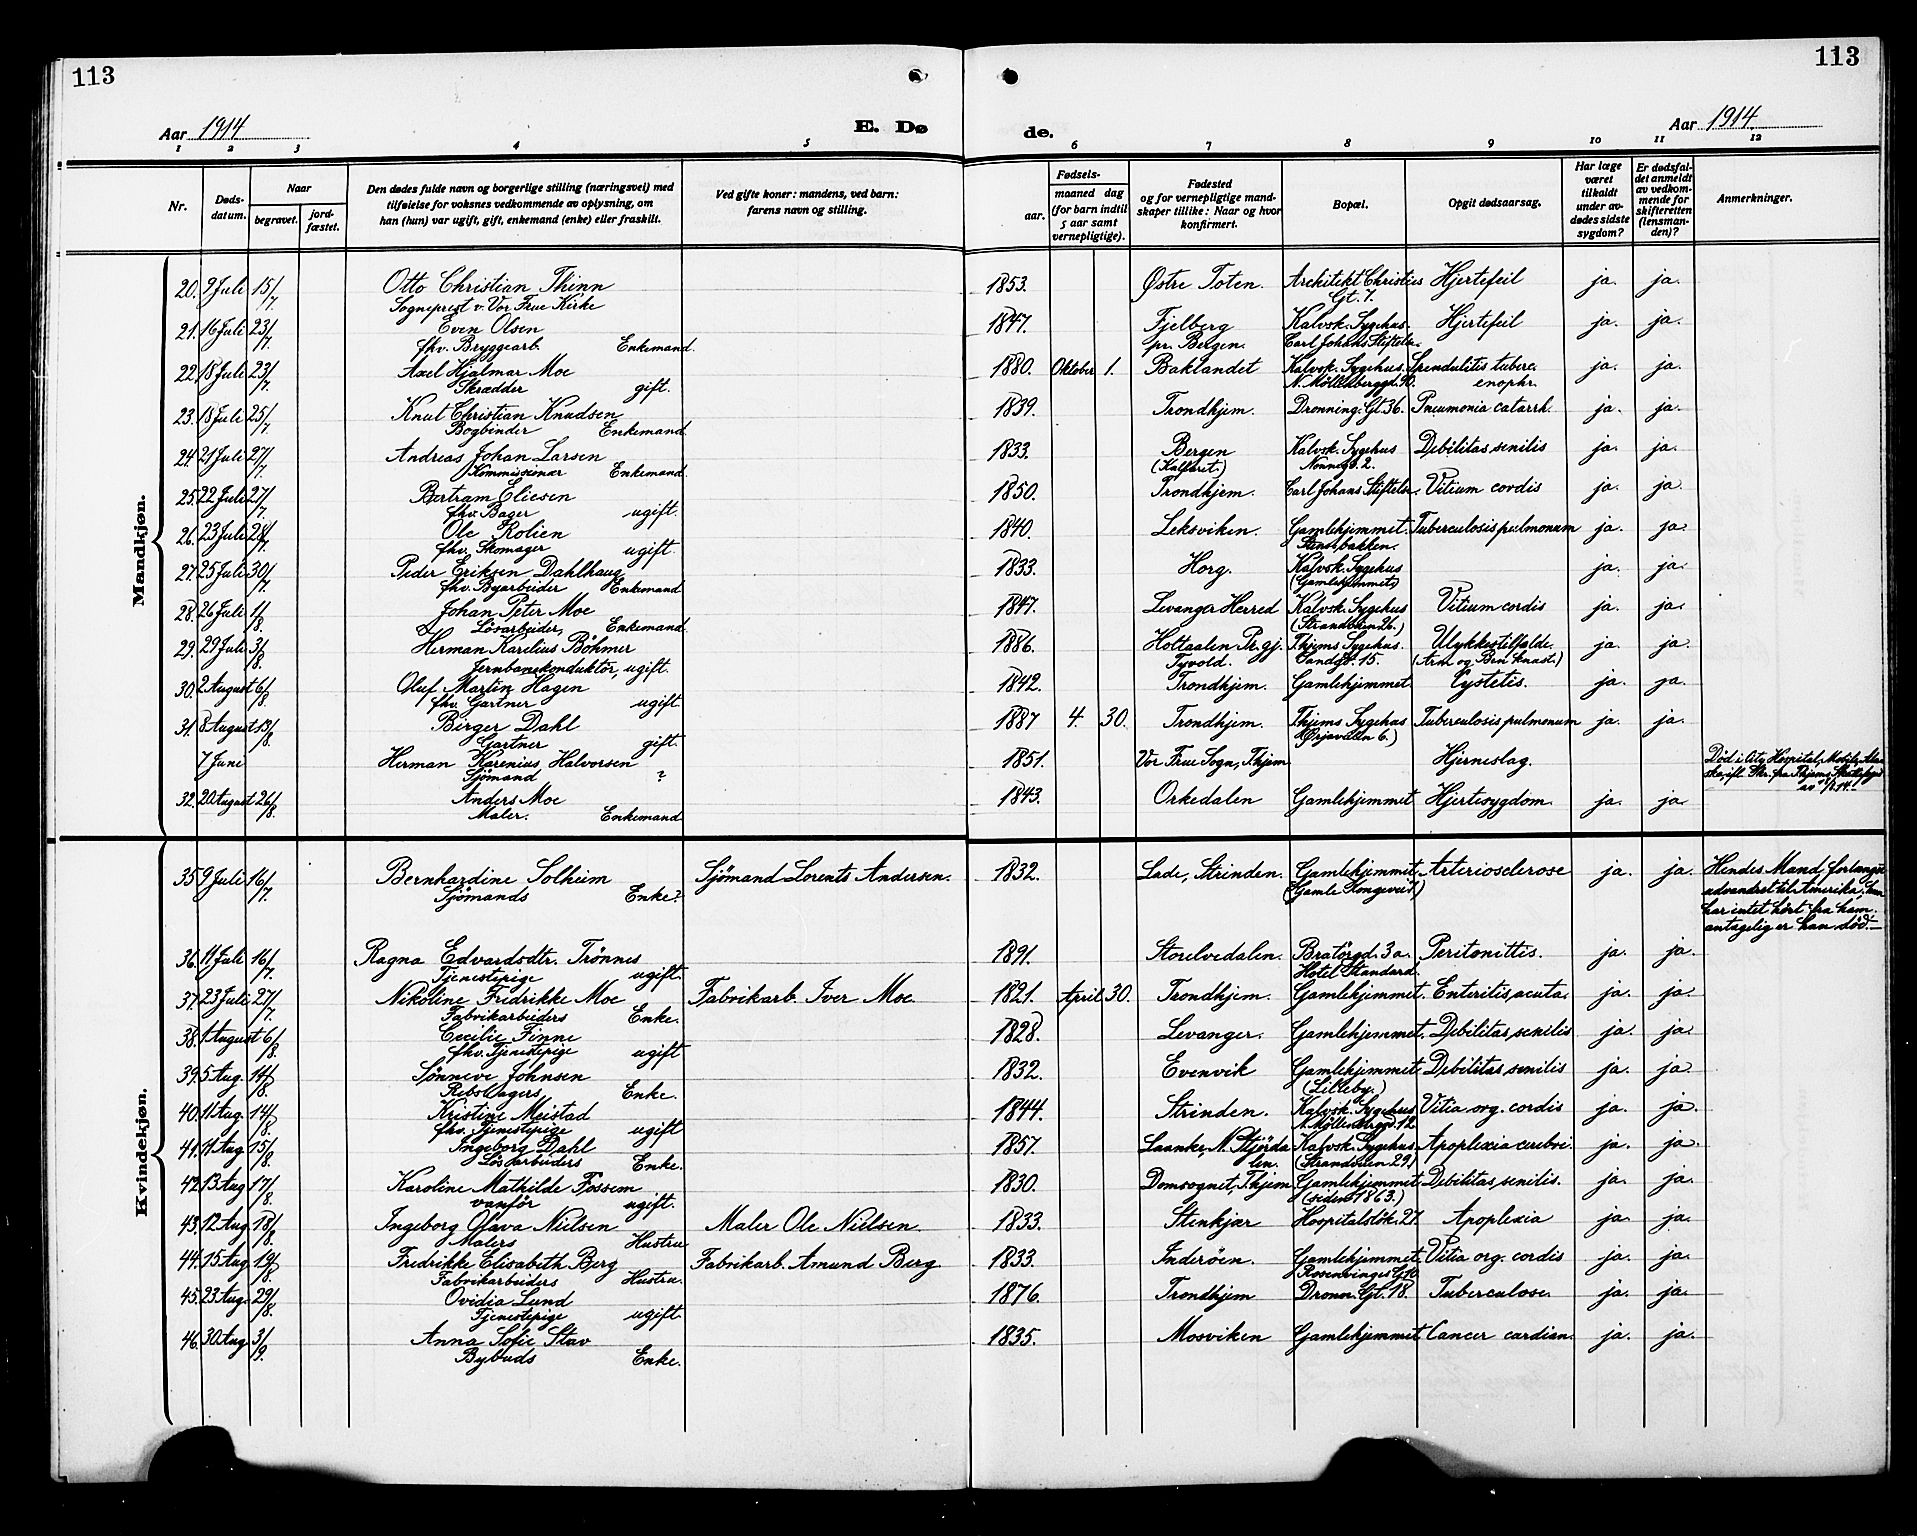 113
113
Aar 1914
E. Dø
de.
Aar 1914.
1 2 3 4 5 6 7 8 9 10 11 12
Nr.
Døds-
datum.
Naar
begravet.
jord-
fæstet.
Den dødes fulde navn og borgerlige stilling (næringsvei) med
tilføielse for voksnes vedkommende av oplysning, om
han (hun) var ugift, gift, enkemand (enke) eller fraskilt.
Ved gifte koner: mandens, ved barn:
farens navn og stilling.
Fødsels-
aar.
maaned dag
(for barn indtil
5 aar samt
vernepligtige).
Fødested
og for vernepligtige mand-
skaper tillike: Naar og hvor
konfirmert.
Bopæl.
Opgit dødsaarsag.
Har læge
været
tilkaldt
under av-
dødes sidste
sygdom?
Er dødsfal-
det anmeldt
av vedkom-
mende for
skifteretten
(lensman-
den)?
Anmerkninger.
Mandkjøn.
20. 9 Juli 15/7. Otto Christian Thinn 1853. Østre Toten. Architekt Christies Hjertefeil ja. ja.
Sogneprest v. Vor Frue Kirke Gt. 7.
21. 16 Juli 23/7. Even Olsen 1847. Fjelberg Kalvsk. Sygehus. Hjertefeil ja. ja.
fhv. Bryggearb. Enkemand. pr. Bergen. Carl Johans Stiftelse.
22. 18 Juli 23/7. Axel Hjalmar Moe 1880. Oktober 1. Baklandet Kalvsk. Sygehus. Spondulitis tuberc. ja. ja.
Skrædder gift. N. Möllenberggd. 90. enophr.
23. 18 Juli 25/7. Knut Christian Knudsen 1839. Trondhjem. Dronning. Gt. 36. Pneumonia catarrh. ja. ja.
Bogbinder Enkemand
24. 21 Juli 27/7. Andreas Johan Larsen 1833. Bergen Kalvsk. Sygehus Debilitas senilis ja. ja.
Kommissionær Enkemand (Kalfaret.) Nonneg. 2.
25. 22 Juli 27/7. Bertram Eliesen 1850. Trondhjem. Carl Johans Stiftelse. Vitium cordis ja. ja
fhv. Bager ugift.
26. 23 Juli 28/7. Ole Rolien 1840. Leksviken. Gamlehjemmet. Tuberculosis pulmonum ja. ja.
fhv. Skomager ugift. Stensbakken.
27. 25 Juli 30/7. Peder Eriksen Dahlhaug 1833. Horg. Kalvsk. Sygehus ja. ja.
fhv. Byarbeider Enkemand (Gamlehjemmet)
28. 26 Juli 1/8. Johan Peter Moe 1847. Levanger Herred Kalvsk. Sygehus Vitium cordis ja. ja.
Lösarbeider, Enkemand. (Strandveien 26.)
29. 29 Juli 3/8. Herman Karelius Böhmer 1886. Holtaalen Pr. gj. Thjems Sygehus. Ulykkestilfælde. ja. ja.
Jernbanekonduktör, ugift. Tyvold. Sandgt. 15. (Arm og Ben knust.)
30. 2 August 6/8. Oluf Martin Hagen 1842. Trondhjem. Gamlehjemmet. Cystetis. ja. ja.
fhv. Gartner ugift
31. 8 August 13/8. Birger Dahl 1887 4. 30. Trondhjem. Thjems Sygehus Tuberculosis pulmonum ja. ja.
Gartner gift. (Ørjaveien 6.)
7 Juni Herman Karenius Halvorsen 1851. Vor Frue Sogn, Thjem Hjerneslag. Død i City Hospital, Mobile, Ala-
Sjömand ?
32. 20 August 26/8. Anders Moe 1843. Orkedalen Gamlehjemmet Hjertesygdom. ja. ja
Maler. Enkemand
Kvindekjøn.
35. 9 Juli 16/7. Bernhardine Solheim Sjömand Lorents Andersen. 1832. Lade, Strinden. Gamlehjemmet. Arteriosclerose ja. ja. Hendes Mand forlængst
Sjömands Enke? (Gamle Kongevei) udvandret til Amerika, hun
har intet hört fra ham.
antagelig er han död.
36. 11 Juli 16/7. Ragna Edvardsdtr. Trönnes 1891. Storelvedalen. Bratörgd. 3a. Peritonittis. ja. ja.
Tjenestepige ugift. Hotel Standard.
37. 23 Juli 27/7. Nikoline Fredrikke Moe Fabrikarb. Iver Moe. 1821. April 30. Trondhjem. Gamlehjemmet. Enteritis acuta. ja. ja
Fabrikarbeiders Enke.
38. 1 August 6/8. Cecilie Finne 1828. Levanger. Gamlehjemmet. Debilitas, senilis ja. ja
fhv. Tjenestepige ugift
39. 5 Aug. 14/8. Sönneve Johnsen 1832. Evenvik Gamlehjemmet Debilitas, senilis ja. ja
Rebslagers Enke. (Lilleby.)
40. 11 Aug. 14/8. Kristine Meistad 1844. Strinden. Kalvsk. Sygehus Vitia org. cordis ja. ja.
fhv. Tjenestepige ugift N. Möllenberggd. 12.
41. 11 Aug 15/8. Ingeborg Dahl 1857. Laanke, N. Stjörda Kalvsk. Sygehus. Apoplexia cerebri. ja. ja.
Lösarbeiders Enke. len. (Strandveien 29.)
42. 13 Aug 17/8. Karoline Mathilde Fossem 1830. Domsognet, Thjem Gamlehjemmet Debilitas, senilis. ja. ja.
vanför ugift. (siden 1863.)
43. 12 Aug. 18/8. Ingeborg Olava Nielsen Maler Ole Nielsen 1833. Stenkjær Hospitalslök. 27. Apoplexia ja. ja.
Malers Hustru
44. 15 Aug 19/8. Fredrikke Elisabeth Berg Fabrikarb. Amund Berg 1833. Inderöen. Gamlehjemmet. Vitia org. cordis ja. ja.
Fabrikarbeiders Hustru. Rosenvinges Gt.
45. 23 Aug. 29/8. Ovidia Lund 1876. Trondhjem Dronn. Gt. 18. Tuberculose. ja. ja.
Tjenestepige ugift.
46. 30 Aug 3/9. Anna Sofie Stav 1835. Mosviken Gamlehjemmet. Cancer cardiæ. ja. ja.
Bybuds Enke.